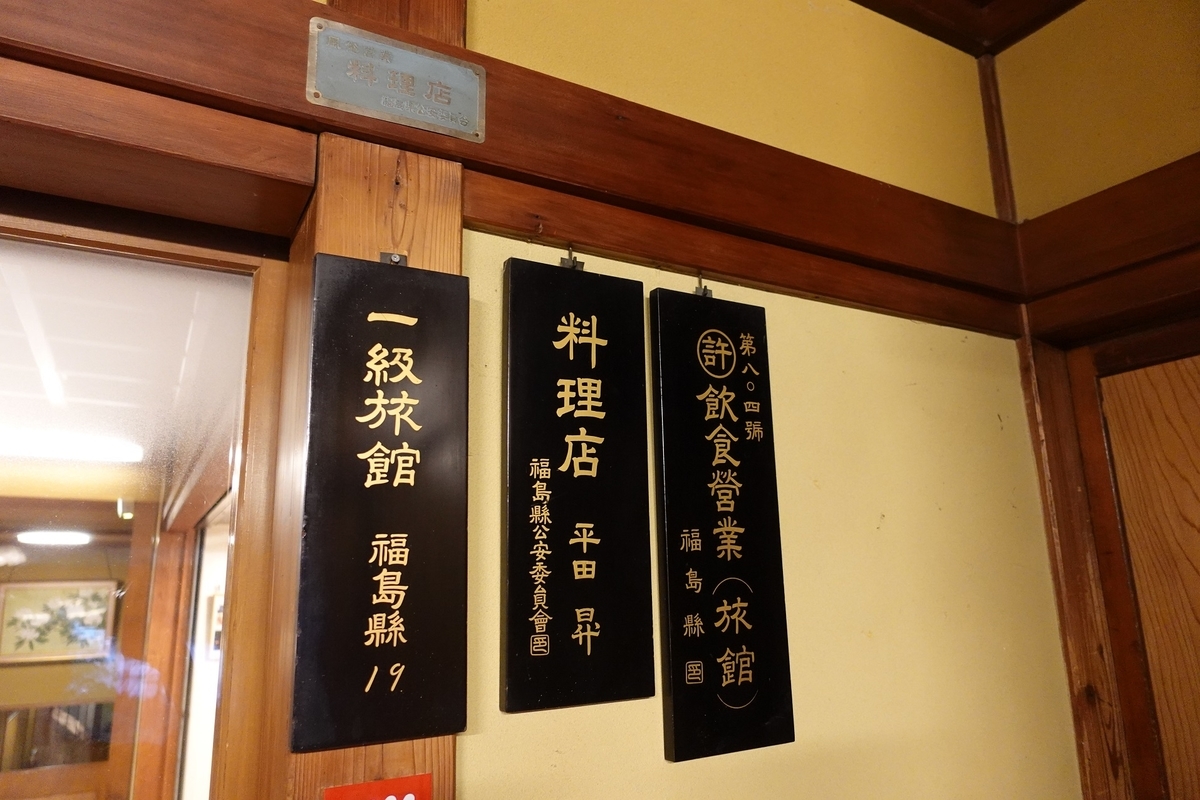 料理店
一級旅館 福島縣 19
料理店 平田 昇
福島縣公安委員會 印
第八〇四號
許 飲食營業(旅館)
福島縣 印